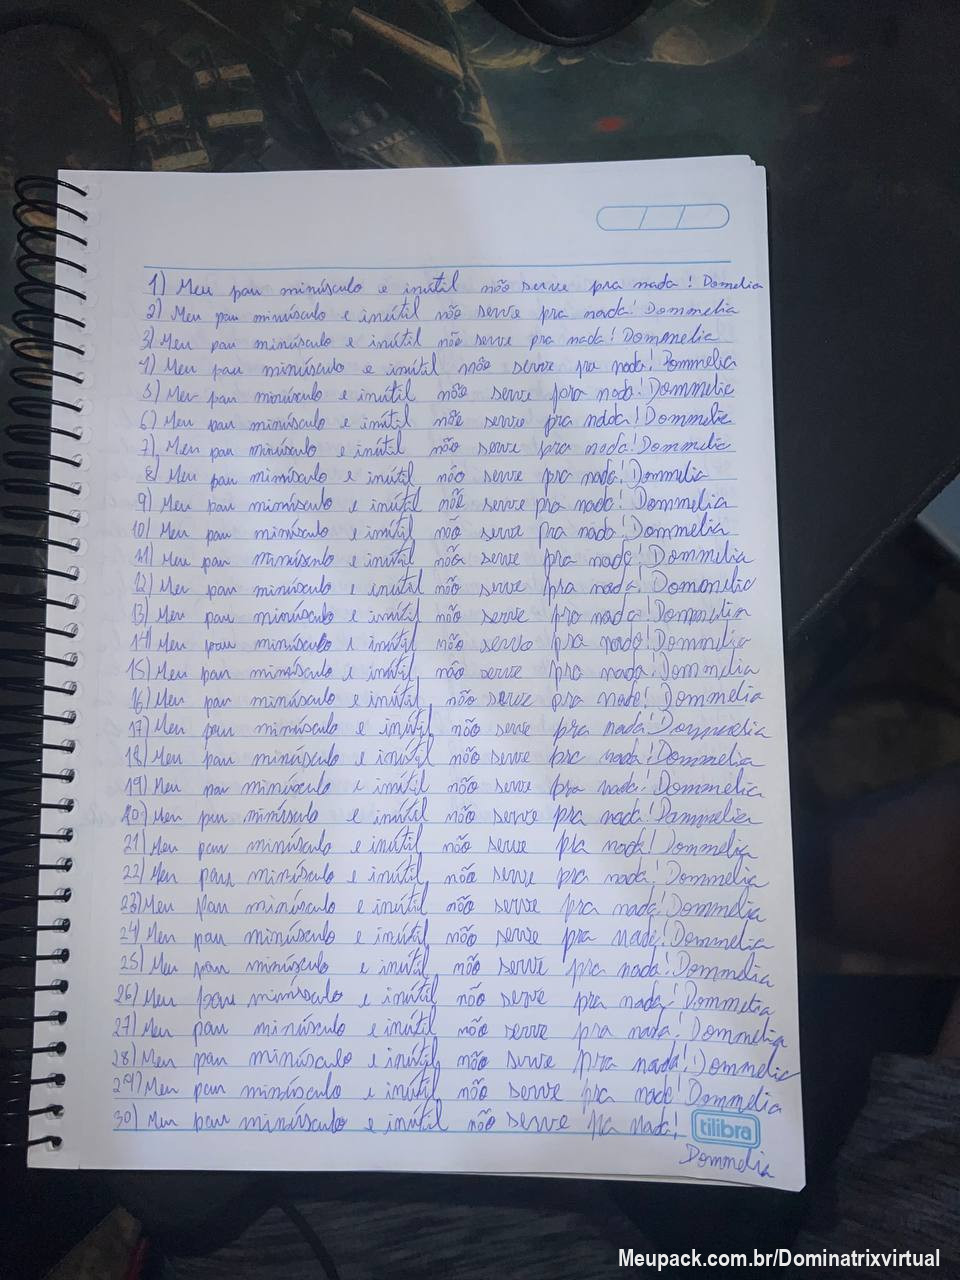 1) Meu pau minúsculo e inútil não serve pra nada! Domelia
2) Meu pau minúsculo e inútil não serve pra nada! Dommelia
3) Meu pau minúsculo e inútil não serve pra nada! Dommelia
4) Meu pau minúsculo e inútil não serve pra nada! Dommelia
5) Meu pau minúsculo e inútil não serve pra nada! Dommelia
6) Meu pau minúsculo e inútil não serve pra nada! Dommelia
7) Meu pau minúsculo e inútil não serve pra nada! Dommelia
8) Meu pau minúsculo e inútil não serve pra nada! Dommelia
9) Meu pau minúsculo e inútil não serve pra nada! Dommelia
10) Meu pau minúsculo e inútil não serve pra nada! Dommelia
11) Meu pau minúsculo e inútil não serve pra nada! Dommelia
12) Meu pau minúsculo e inútil não serve pra nada! Dommelia
13) Meu pau minúsculo e inútil não serve pra nada! Dommelia
14) Meu pau minúsculo e inútil não serve pra nada! Dommelia
15) Meu pau minúsculo e inútil não serve pra nada! Dommelia
16) Meu pau minúsculo e inútil não serve pra nada! Dommelia
17) Meu pau minúsculo e inútil não serve pra nada! Dommelia
18) Meu pau minúsculo e inútil não serve pra nada! Dommelia
19) Meu pau minúsculo e inútil não serve pra nada! Dommelia
20) Meu pau minúsculo e inútil não serve pra nada! Dommelia
21) Meu pau minúsculo e inútil não serve pra nada! Dommelia
22) Meu pau minúsculo e inútil não serve pra nada! Dommelia
23) Meu pau minúsculo e inútil não serve pra nada! Dommelia
24) Meu pau minúsculo e inútil não serve pra nada! Dommelia
25) Meu pau minúsculo e inútil não serve pra nada! Dommelia
26) Meu pau minúsculo e inútil não serve pra nada! Dommelia
27) Meu pau minúsculo e inútil não serve pra nada! Dommelia
28) Meu pau minúsculo e inútil não serve pra nada! Dommelia
29) Meu pau minúsculo e inútil não serve pra nada! Dommelia
30) Meu pau minúsculo e inútil não serve pra nada!
tilibra
Dommelia
Meupack.com.br/Dominatrixvirtual